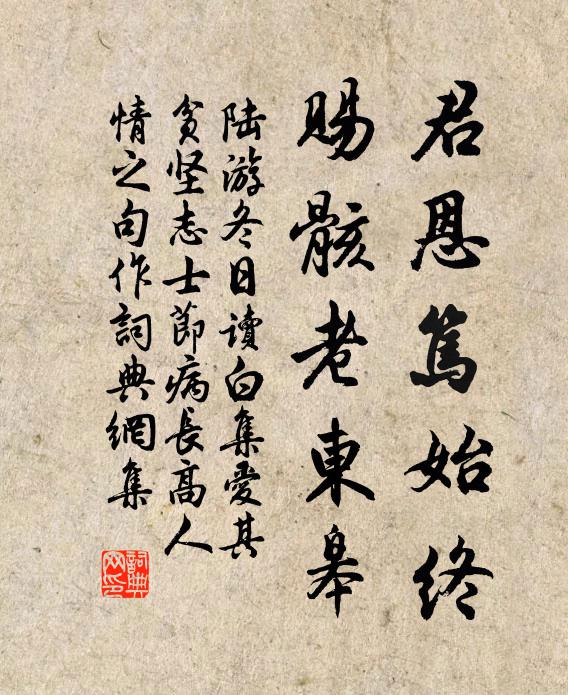 君恩篤始终
賜骸老東皋
陆游冬日讀白集愛其
貧坚志士節病長高人
情之句作詞典網集
詞典網印